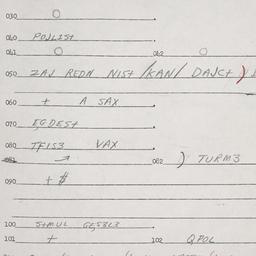 030 O
040 POJLIST
041 O 042 O
050 ZAJ REDN NIST /KAN/ DAJCT )
060 + A SAX
070 EGDEST
080 TFIS3 VAX
081 → 082 ) TURM3
090 + $
100 STMUL GESBL3
101 + 102 QPOL